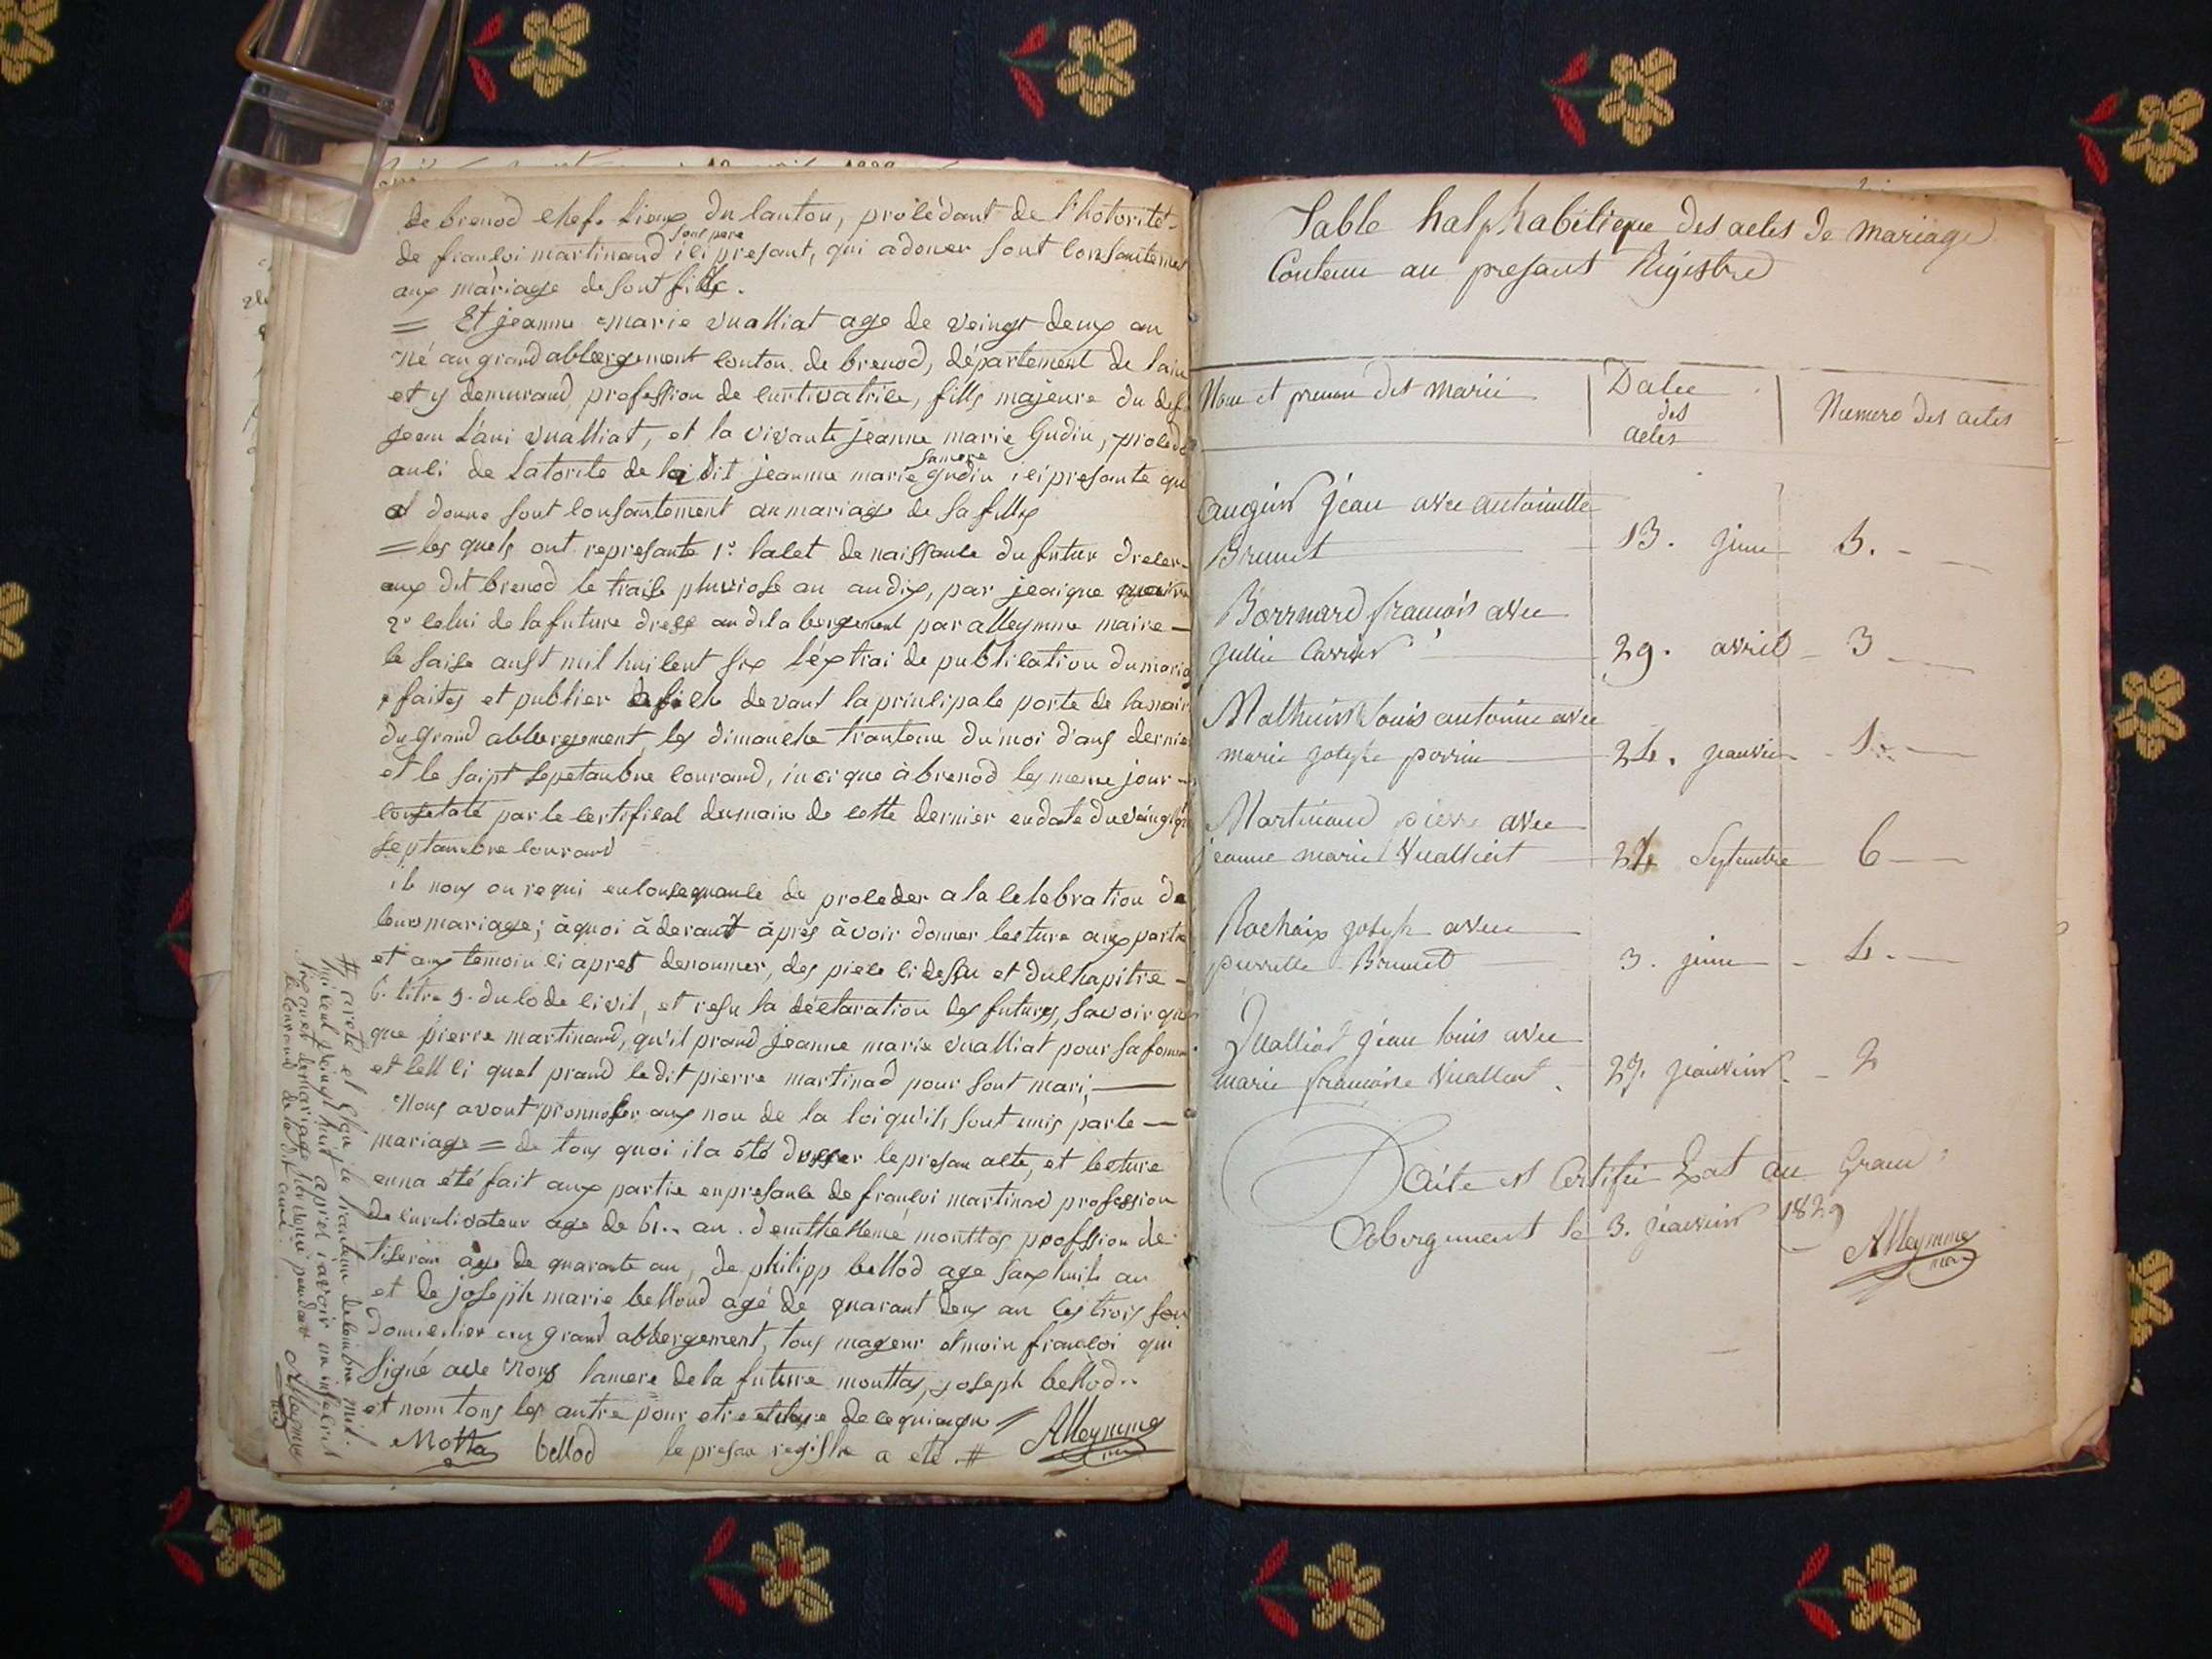 de brenod chef. Lieux du Canton, procédant de l'hotoritet
de francoi martinand sont pere ici presant, qui a doner sont consantement
aux màriage de sont fils.
= Et jeanne marie vualliat age de veingt deux an
né au grand abbergement conton. de brenod, département de lain
et y demurand, profession de curtivatrice, fills majeure du def.
jean Lavi vualliat, et la vivante jeanne marie Gudin, procede
auci de Latorite de la dit jeanne marie Gudin samere ici presante qui
a donne sont consantement au mariage de sa fille
= les quels ont representé 1º. lalet de naissance du futur dreler
aux dit brenod le traise pluviose an an dix, par jeaique maire
2º celui de la future dresse au dit abergement par alleymme maire —
le saise aust mil huilent six l'extrai de publication du mariag
faites et publier afiche devant la principale porte de la mair
du grand abbergement les dimanche tranteun du moi d'aus dernie
et le saipt sepetanbre courand, inci que à brenod les meme jour —
constaté par le certifical du maire de cette dernier en date du veingt
septanbre courand
il nous on requi en consequance de proceder a la celebration de
leurs mariage; àquoi àderant àprès àvoir donner lecture aux partie
et aux temoin ci apres denoumer, des piece ci dessu et du chapitre —
6. titre 5. du code civil, et resu la déclaration des futures, savoir que
que pierre martinand, qu'il prand jeanne marie vualliat pour sa fomme
et cell ci quel prand le dit pierre martinad pour sont mari, —
Nous avont pronnoser aux non de la loi qu'ils sont unis par le —
mariage = de tous quoi il a été dresser le presan alte, et lecture
enna été fait aux partie en presance de francoi martinand profession
de curativateur age de 61.. an. demthelemé mouttas proffsion de
tiseran age de quarante an, de philipp bellod age sanxhuite an
et de joseph marie bellond agé de quarant deux an les trois son
domicilier au grand abbergement, tous mageur etmoin francoi qui
signé ave nous lamere de la future mouttas, joseph bellod..
et nom tous les autre pour etre de ce quinqu
Motta bellod le presan registre a eté # Alleymme
# areté et clou le trantun decenbre mil
huicent veingt huit apres i avoir un incrit
six acte de mariage pandant
le courand de la dit anné. Alleymme
Table halphabétique des actes de mariage
Contenu au presant Régistre
Nom et prenom des mariés
Datee
des
actes
Numero des actes
Caugin Jean avec antoinette
Brunet 13. Juin 5. —
Borrmard francois avec
Jullie Carrier 29. avril — 3 —
Mathuin Louis antoine avec
marie joseph perrin 24. Jeanvier — 1. —
Martinand pierre avec
jeanne marie Vualliat 24 Septembre 6 —
Rochaix joseph avec
pierrette Brunet 3. juin — 4. —
Vualliat jean louis avec
marie francoise Vualliat. 27. Jeanvier — 2
Faite et Certifié Exat au Grand
Abergement le 3. Jeanvier 1829
Alleymme